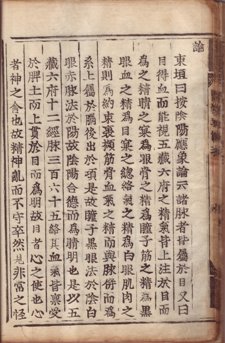 論
東垣曰按陰陽應象論云諸脉者皆屬於目又曰
目得血而能視五藏六府之精氣皆上注於目而
爲之精精之窠爲眼骨之精爲瞳子筋之精爲黑
眼血之精爲目窠之總絡氣之精爲白眼肌肉之
精則爲約束裹擷筋骨血氣之精而與脉併而爲
系上屬於腦後出於項是故瞳子黑眼法於陰白
眼赤脉法於陽故陰陽合德而爲睛明也是以五
藏六府十二經脉三百六十五絡其血氣皆稟受
於脾土而上貫於目而爲明故目者心之使也心
者神之舍也故精神亂而不守卒然見非常之怪